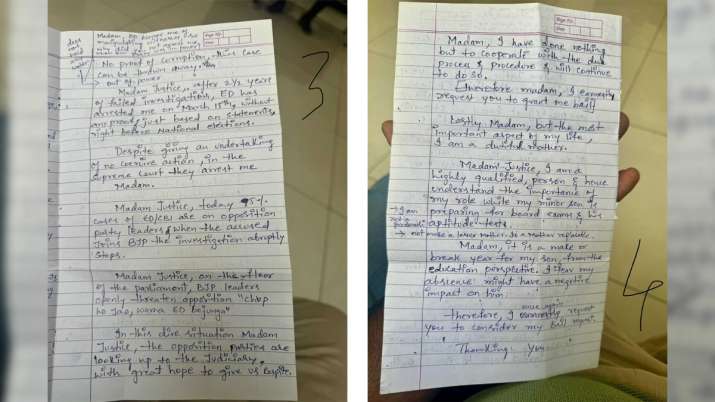 does
not
Madam, ED
manipulating
No proof of corruption, this case
can be thrown away,
→ out of power
Madam Justice, after 2½ years
of failed investigations, ED has
arrested me on March 15th, without
any proof, just based on statements,
right before National elections.
Despite giving an undertaking
of no coercive action, in the
supreme court they arrest me
Madam.
Madam Justice, today 95%
cases of ED/CBI are on opposition
party leaders & when the accused
Joins BJP the investigation abruptly
stops.
Madam Justice, on the floor
of the parliament, BJP leaders
openly threaten opposition "chup
ho Jao, warna ED bejunga"
In this dire situation Madam
Justice, the opposition parties are
looking up to the Judiciary,
with great hope to give us Respite.
3
Page No.
Date
Madam, I have done nothing
but to cooperate with the due
process & procedure & will continue
to do so.
Therefore madam, I earnestly
request you to grant me bail
Lastly Madam, but the most
important aspect of my life,
I am a dutiful mother.
Madam Justice, I am a
highly qualified, person & hence
understand the importance of
my role while my minor son is
preparing for board exams & his
aptitude tests.
→ I am
not a
Madam, it is a make or
break year for my son, from the
education perspective. I fear my
absence might have a negetive
impact on him.
once again
therefore, I request
you to consider my bail
Thanking You
4